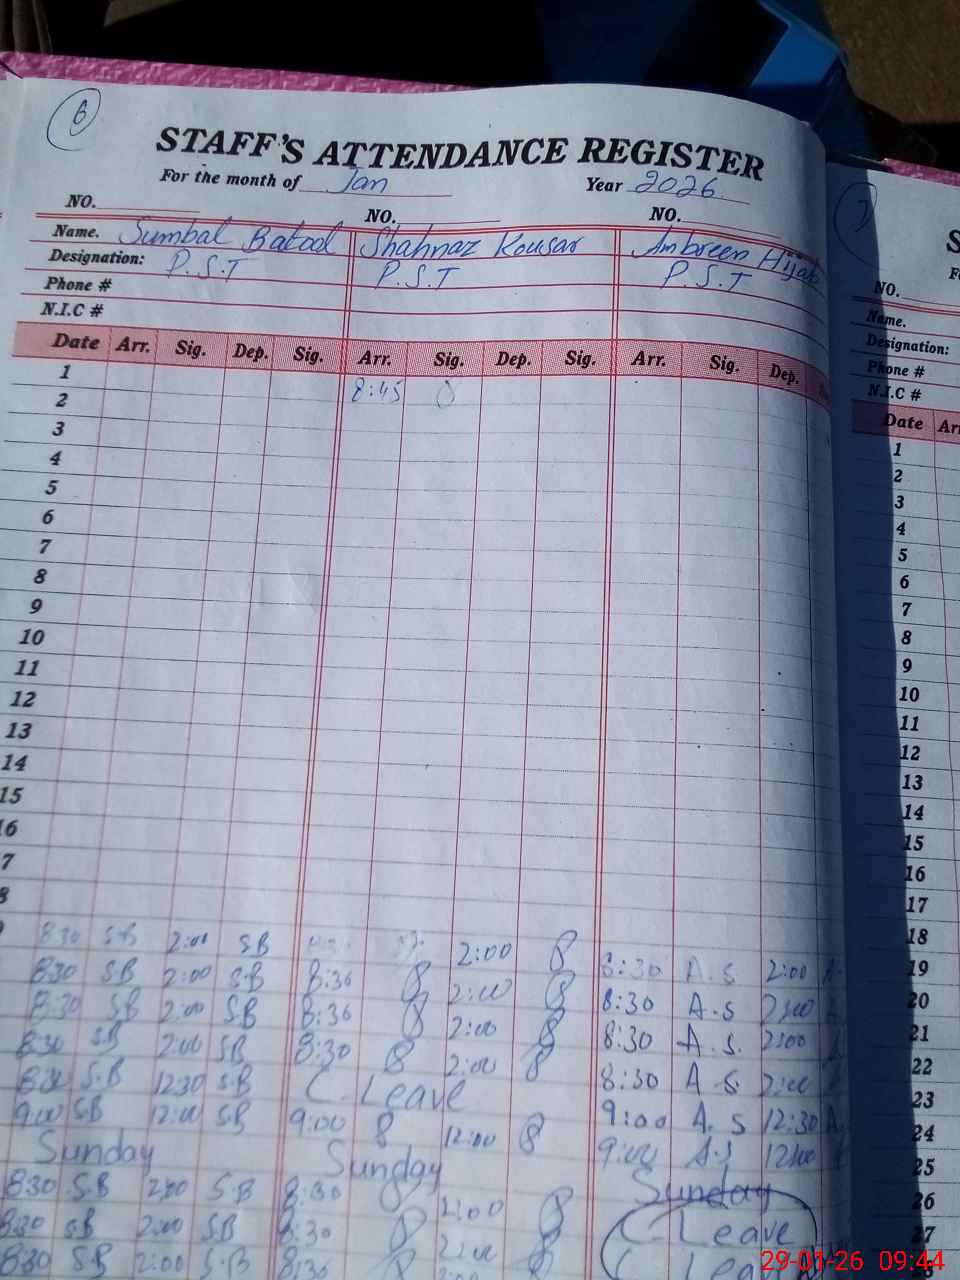 6
STAFF'S ATTENDANCE REGISTER
For the month of Jan Year 2026
NO. NO. NO.
Name. Sumbal Batool Shahnaz Kousar Ambreen Hijab
Designation: P.S.T P.S.T P.S.T
Phone #
N.I.C #
Date Arr. Sig. Dep. Sig. Arr. Sig. Dep. Sig. Arr. Sig. Dep.
1 8:45
2
3
4
5
6
7
8
9
10
11
12
13
14
15
16
7
8
8:30 S.B 2:00 SB 2:00 8 8:30 A.S 2:00 A.
8:30 SB 2:00 SB 8:36 8 2:00 8 8:30 A.S 2:00
8:30 SB 2:00 SB 8:36 8 2:00 8 8:30 A.S. 2:00
8:30 SB 2:00 SB 8:30 8 2:00 8 8:30 A.S 2:00
S.B 12:30 S.B C-Leave 9:00 A.S 12:30 A.
9:00 SB 12:00 SB 9:00 8 12:00 8 9:00 A.S 12:00
Sunday Sunday Sunday
8:30 S.B 2:00 S.B 8:30 8 2:00 8 C-Leave
8:30 SB 2:00 SB 8:30 8 2:00 8
8:30 SB 2:00 S.B 8:36 8
7
S
NO.
Name.
Designation:
Phone #
N.I.C #
Date Arr
1
2
3
4
5
6
7
8
9
10
11
12
13
14
15
16
17
18
19
20
21
22
23
24
25
26
27
29-01-26 09:44